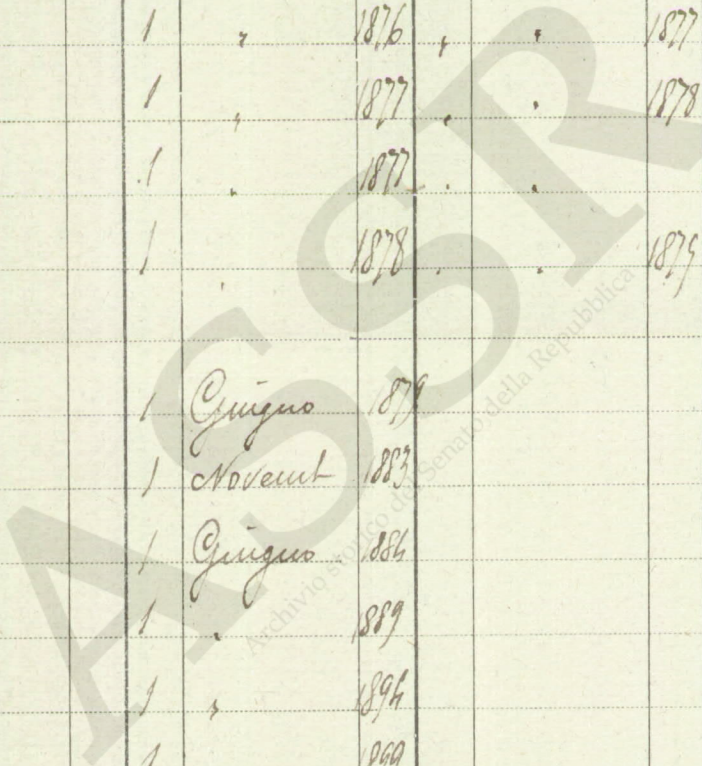 1 " 1876 " " 1877
1 " 1877 " " 1878
1 " 1877 " "
1 " 1878 " " 1879
1 Giugno 1879
1 Novemb 1883
1 Giugno 1884
1 " 1889
1 " 1894
1 1899
ASSR
Archivio storico del Senato della Repubblica